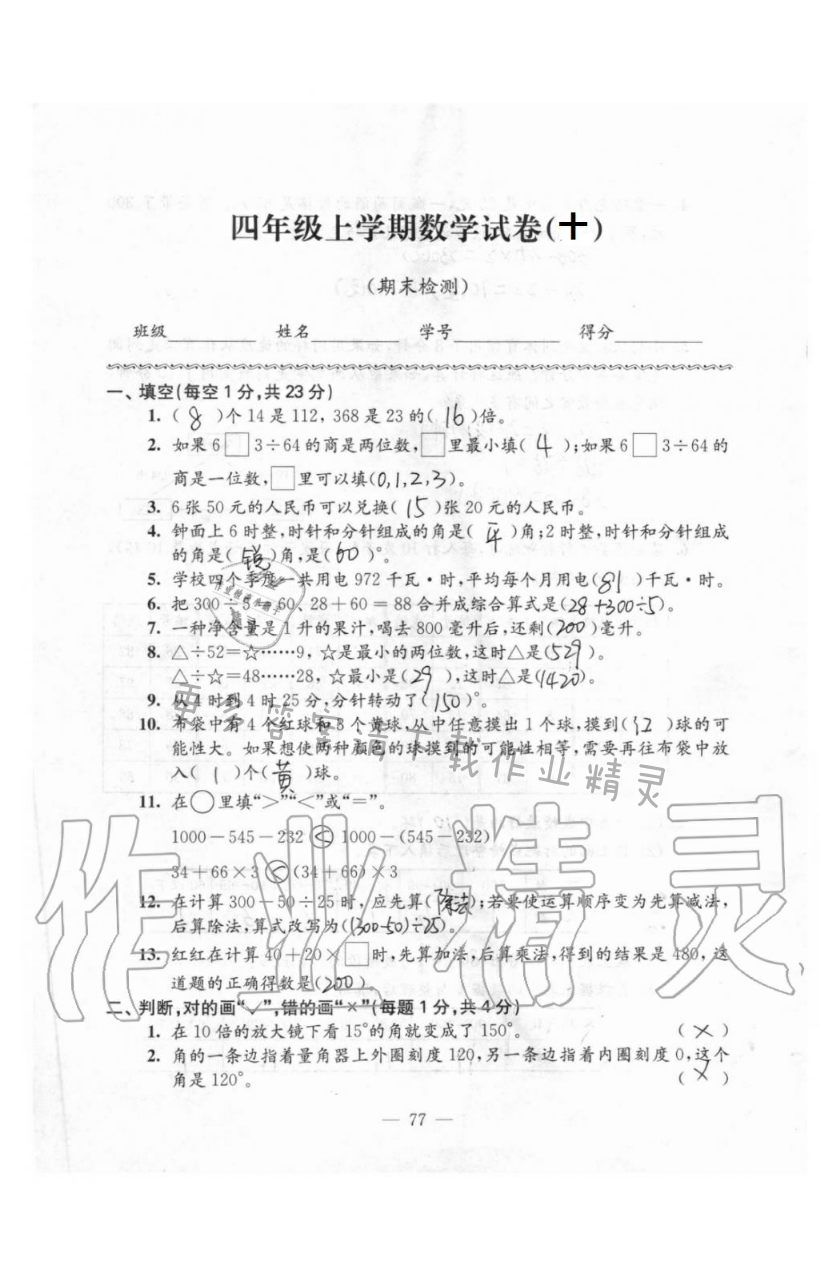 四年级上学期数学试卷(十)
(期末检测)
班级 姓名 学号 得分
一、填空(每空1分,共23分)
1. ( 8 )个14是112,368是23的( 16 )倍。
2. 如果6□3÷64的商是两位数,□里最小填( 4 );如果6□3÷64的
商是一位数,□里可以填(0,1,2,3)。
3. 6张50元的人民币可以兑换( 15 )张20元的人民币。
4. 钟面上6时整,时针和分针组成的角是( 平 )角;2时整,时针和分针组成
的角是( 锐 )角,是( 60 )°。
5. 学校四个季度一共用电972千瓦·时,平均每个月用电( 81 )千瓦·时。
6. 把300÷5=60、28+60=88合并成综合算式是(28+300÷5)。
7. 一种净含量是1升的果汁,喝去800毫升后,还剩(200)毫升。
8. △÷52=☆……9,☆是最小的两位数,这时△是(529)。
△÷☆=48……28,☆最小是(29),这时△是(1420)。
9. 从4时到4时25分,分针转动了(150)°。
10. 布袋中有4个红球和3个黄球,从中任意摸出1个球,摸到(红)球的可
能性大。如果想使两种颜色的球摸到的可能性相等,需要再往布袋中放
入( 1 )个( 黄 )球。
11. 在○里填“>”“<”或“=”。
1000-545-232 < 1000-(545-232)
34+66×3 < (34+66)×3
12. 在计算300-50÷25时,应先算(除法);若要使运算顺序变为先算减法,
后算除法,算式改写为((300-50)÷25)。
13. 红红在计算40+20×□时,先算加法,后算乘法,得到的结果是480,这
道题的正确得数是(200)。
二、判断,对的画“√”,错的画“×”(每题1分,共4分)
1. 在10倍的放大镜下看15°的角就变成了150°。 (×)
2. 角的一条边指着量角器上外圈刻度120,另一条边指着内圈刻度0,这个
角是120°。 (×)
— 77 —
更多答案请下载作业精灵
作业精灵